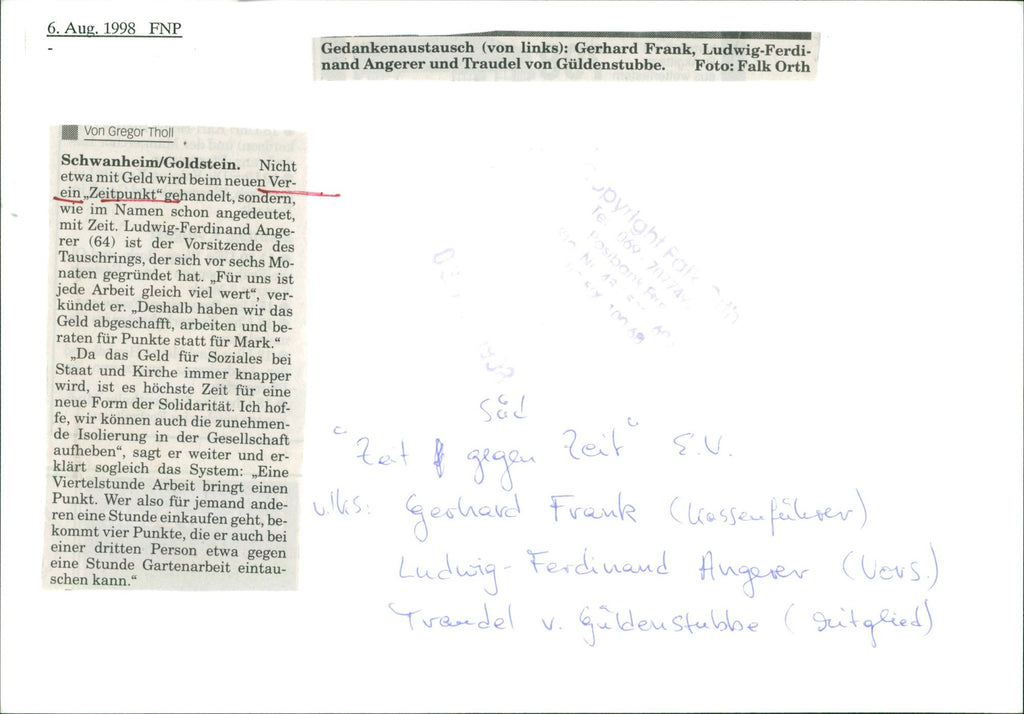 6. Aug. 1998 FNP
-
Gedankenaustausch (von links): Gerhard Frank, Ludwig-Ferdi-
nand Angerer und Traudel von Güldenstubbe. Foto: Falk Orth
Von Gregor Tholl
Schwanheim/Goldstein. Nicht
etwa mit Geld wird beim neuen Ver-
ein „Zeitpunkt“ gehandelt, sondern,
wie im Namen schon angedeutet,
mit Zeit. Ludwig-Ferdinand Ange-
rer (64) ist der Vorsitzende des
Tauschrings, der sich vor sechs Mo-
naten gegründet hat. „Für uns ist
jede Arbeit gleich viel wert“, ver-
kündet er. „Deshalb haben wir das
Geld abgeschafft, arbeiten und be-
raten für Punkte statt für Mark.“
„Da das Geld für Soziales bei
Staat und Kirche immer knapper
wird, ist es höchste Zeit für eine
neue Form der Solidarität. Ich hof-
fe, wir können auch die zunehmen-
de Isolierung in der Gesellschaft
aufheben“, sagt er weiter und er-
klärt sogleich das System: „Eine
Viertelstunde Arbeit bringt einen
Punkt. Wer also für jemand ande-
ren eine Stunde einkaufen geht, be-
kommt vier Punkte, die er auch bei
einer dritten Person etwa gegen
eine Stunde Gartenarbeit eintau-
schen kann.“
Copyright Falk
Tel. 069
Postbank
Süd
"Zeit gegen Zeit" E.V.
v.lks: Gerhard Frank (Kassenführer)
Ludwig-Ferdinand Angerer (Vors.)
Traudel v. Güldenstubbe (Mitglied)